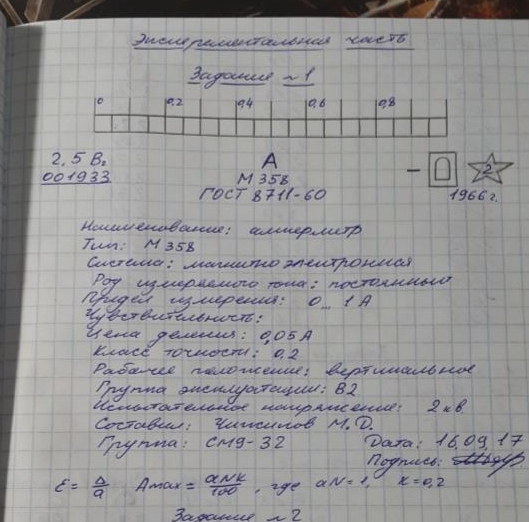 Эксперементальная часть
Задание №1
0 0,2 0,4 0,6 0,8
2,5 В2 А 2
001933 М 358
ГОСТ 8711-60 1966г.
Наименование: амперметр
Тип: М 358
Система: магнитоэлектронися
Род измеряемого тока: постоянный
Придел измерения: 0...1А
Чувствительность:
Цена деления: 0,05А
Класс точности: 0,2
Рабочее положение: вертикальное
Группа эксплуатации: В2
Испытательное напряжение: 2 кв.
Составил: М.Д.
Группа: СМ9-32 Дата: 16,09,17
Подпись:
Ɛ = Δ/a Amax = aNK/100, где aN=1, K=0,2
Задание №2